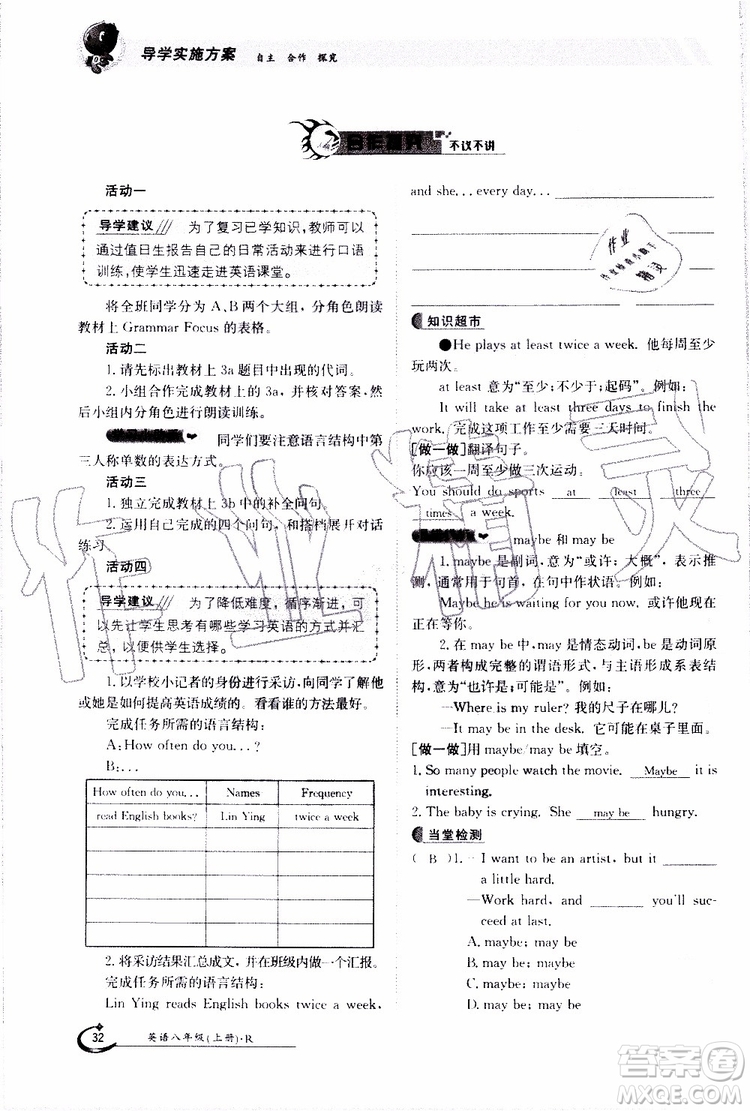 导学实施方案 自主 合作 探究
不议不讲
活动一
导学建议 为了复习已学知识,教师可以
通过值日生报告自己的日常活动来进行口语
训练,使学生迅速走进英语课堂。
将全班同学分为 A、B 两个大组,分角色朗读
教材上 Grammar Focus 的表格。
活动二
1. 请先标出教材上 3a 题目中出现的代词。
2. 小组合作完成教材上的 3a,并核对答案,然
后小组内分角色进行朗读训练。
同学们要注意语言结构中第
三人称单数的表达方式。
活动三
1. 独立完成教材上 3b 中的补全问句。
2. 运用自己完成的四个问句,和搭档展开对话
练习。
活动四
导学建议 为了降低难度,循序渐进,可
以先让学生思考有哪些学习英语的方式并汇
总,以便供学生选择。
1. 以学校小记者的身份进行采访,向同学了解他
或她是如何提高英语成绩的。看看谁的方法最好。
完成任务所需的语言结构:
A: How often do you...?
B:...
How often do you...? Names Frequency
read English books? Lin Ying twice a week
2. 将采访结果汇总成文,并在班级内做一个汇报。
完成任务所需的语言结构:
Lin Ying reads English books twice a week,
32 英语八年级(上册)·R
and she... every day...
知识超市
●He plays at least twice a week. 他每周至少
玩两次。
at least 意为“至少;不少于;起码”。例如:
It will take at least three days to finish the
work. 完成这项工作至少需要三天时间。
[做一做]翻译句子。
你应该一周至少做三次运动。
You should do sports at least three
times a week.
maybe 和 may be
1. maybe 是副词,意为“或许;大概”,表示推
测,通常用于句首,在句中作状语。例如:
Maybe he is waiting for you now. 或许他现在
正在等你。
2. may be 中,may 是情态动词,be 是动词原
形,两者构成完整的谓语形式,与主语形成系表结
构,意为“也许是;可能是”。例如:
—Where is my ruler? 我的尺子在哪儿?
—It may be in the desk. 它可能在桌子里面。
[做一做]用 maybe/may be 填空。
1. So many people watch the movie. Maybe it is
interesting.
2. The baby is crying. She may be hungry.
当堂检测
( B )1. —I want to be an artist, but it ______
a little hard.
—Work hard, and ______ you'll suc-
ceed at last.
A. maybe; may be
B. may be; maybe
C. maybe; maybe
D. may be; may be
作业
精灵
作业精灵
答案圈
MXQE.COM